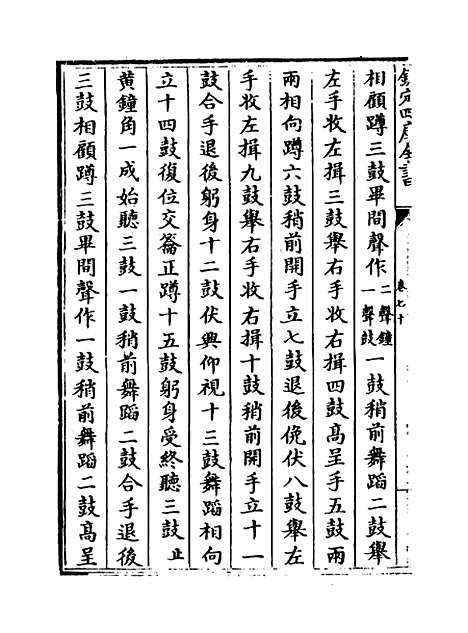 欽定四庫全書
卷七十
相顧蹲三鼓畢間聲作一聲鐘一聲鼓一鼓稍前舞蹈二鼓舉
左手收左揖三鼓舉右手收右揖四鼓高呈手五鼓兩
兩相向蹲六鼓稍前開手立七鼓退後俛伏八鼓舉左
手收左揖九鼓舉右手收右揖十鼓稍前開手立十一
鼓合手退後躬身十二鼓伏興仰視十三鼓舞蹈相向
立十四鼓復位交籥正蹲十五鼓躬身受終聽三鼓止
黄鐘角一成始聽三鼓一鼓稍前舞蹈二鼓合手退後
三鼓相顧蹲三鼓畢間聲作一鼓稍前舞蹈二鼓高呈